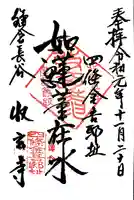 奉拝 令和元年十一月二十日
四條金吾邸址
如蓮華在水
鎌倉長谷
収玄寺